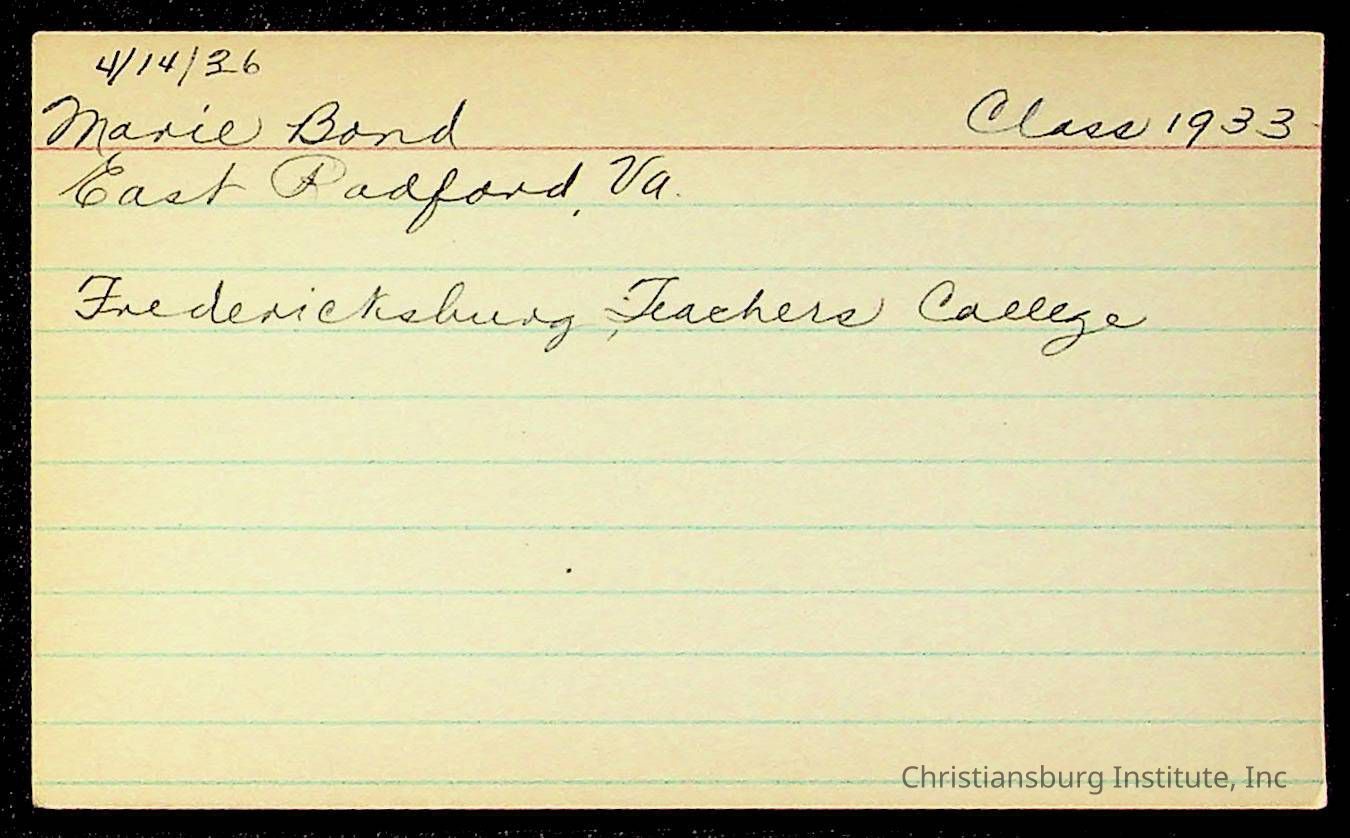 4/14/36
Marie Bond Class 1933
East Radford, Va.
Fredericksburg, Teachers College
Christiansburg Institute, Inc